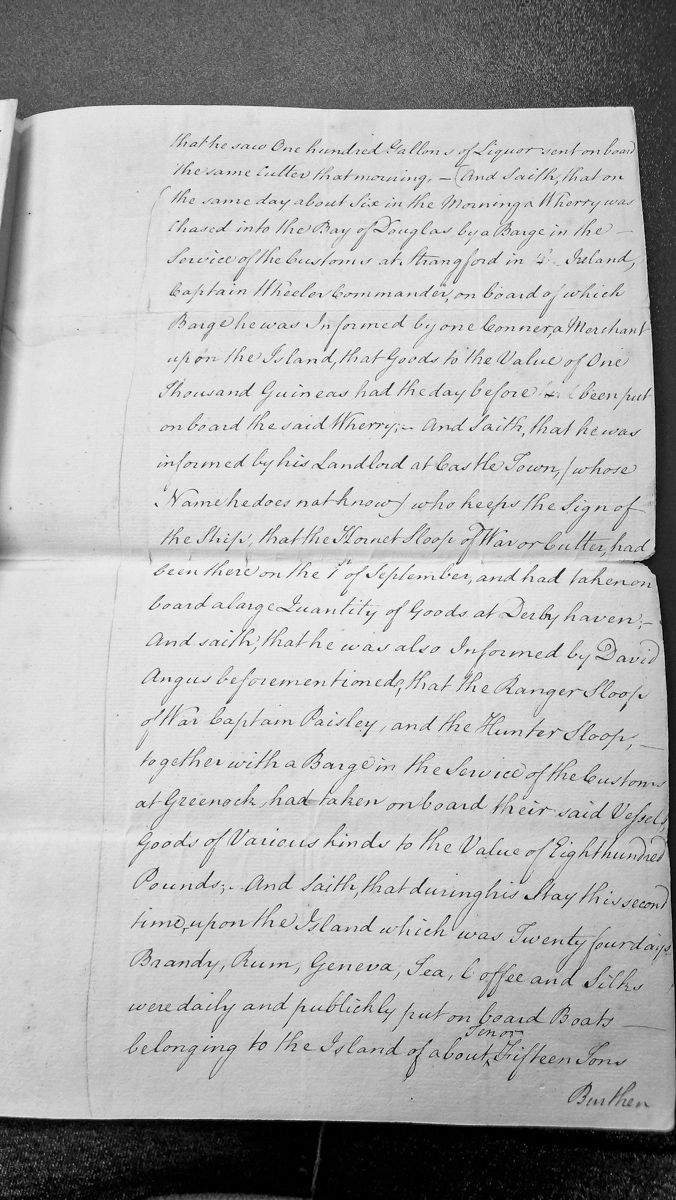 that he saw One hundred Gallons of Liquor sent on board
the same Cutter that morning, — (And Saith, that on
the same day about Six in the Morning a Wherry was
Chased into the Bay of Douglas by a Barge in the —
Service of the Customs at Strangford in Ireland,
Captain Wheeler Commander, on board of which
Barge he was Informed by one Conner, a Merchant
upon the Island, that Goods to the Value of One
Thousand Guineas had the day before been put
on board the said Wherry; — And Saith, that he was
informed by his Landlord at Castle Town, (whose
Name he does not know) who keeps the Sign of
the Ship, that the Hornet Sloop of War or Cutter, had
been there on the 1st of September, and had taken on
board a large Quantity of Goods at Derby haven; —
And saith, that he was also Informed by David
Angus beforementioned, that the Ranger Sloop
of War Captain Paisley, and the Hunter Sloop, —
together with a Barge in the Service of the Customs
at Greenock, had taken on board their said Vessels,
Goods of Various kinds to the Value of Eight hundred
Pounds; — And Saith, that during his Stay this second
time, upon the Island which was Twenty four days
Brandy, Rum, Geneva, Tea, Coffee and Silks
were daily and publickly put on board Boats —
belonging to the Island of about Ten or Fifteen Tons
Burthen